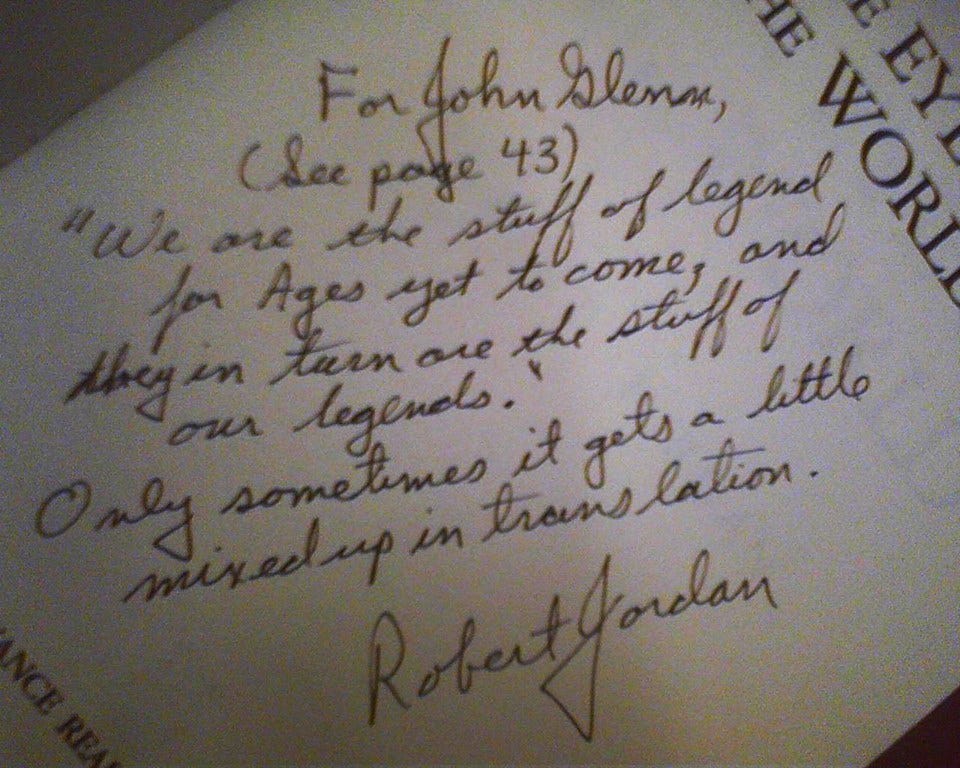 For John Glenn,
(See page 43)
"We are the stuff of legend
for Ages yet to come, and
they in turn are the stuff of
our legends."
Only sometimes it gets a little
mixed up in translation.
Robert Jordan
E EYE
HE WORLD
ANCE REA